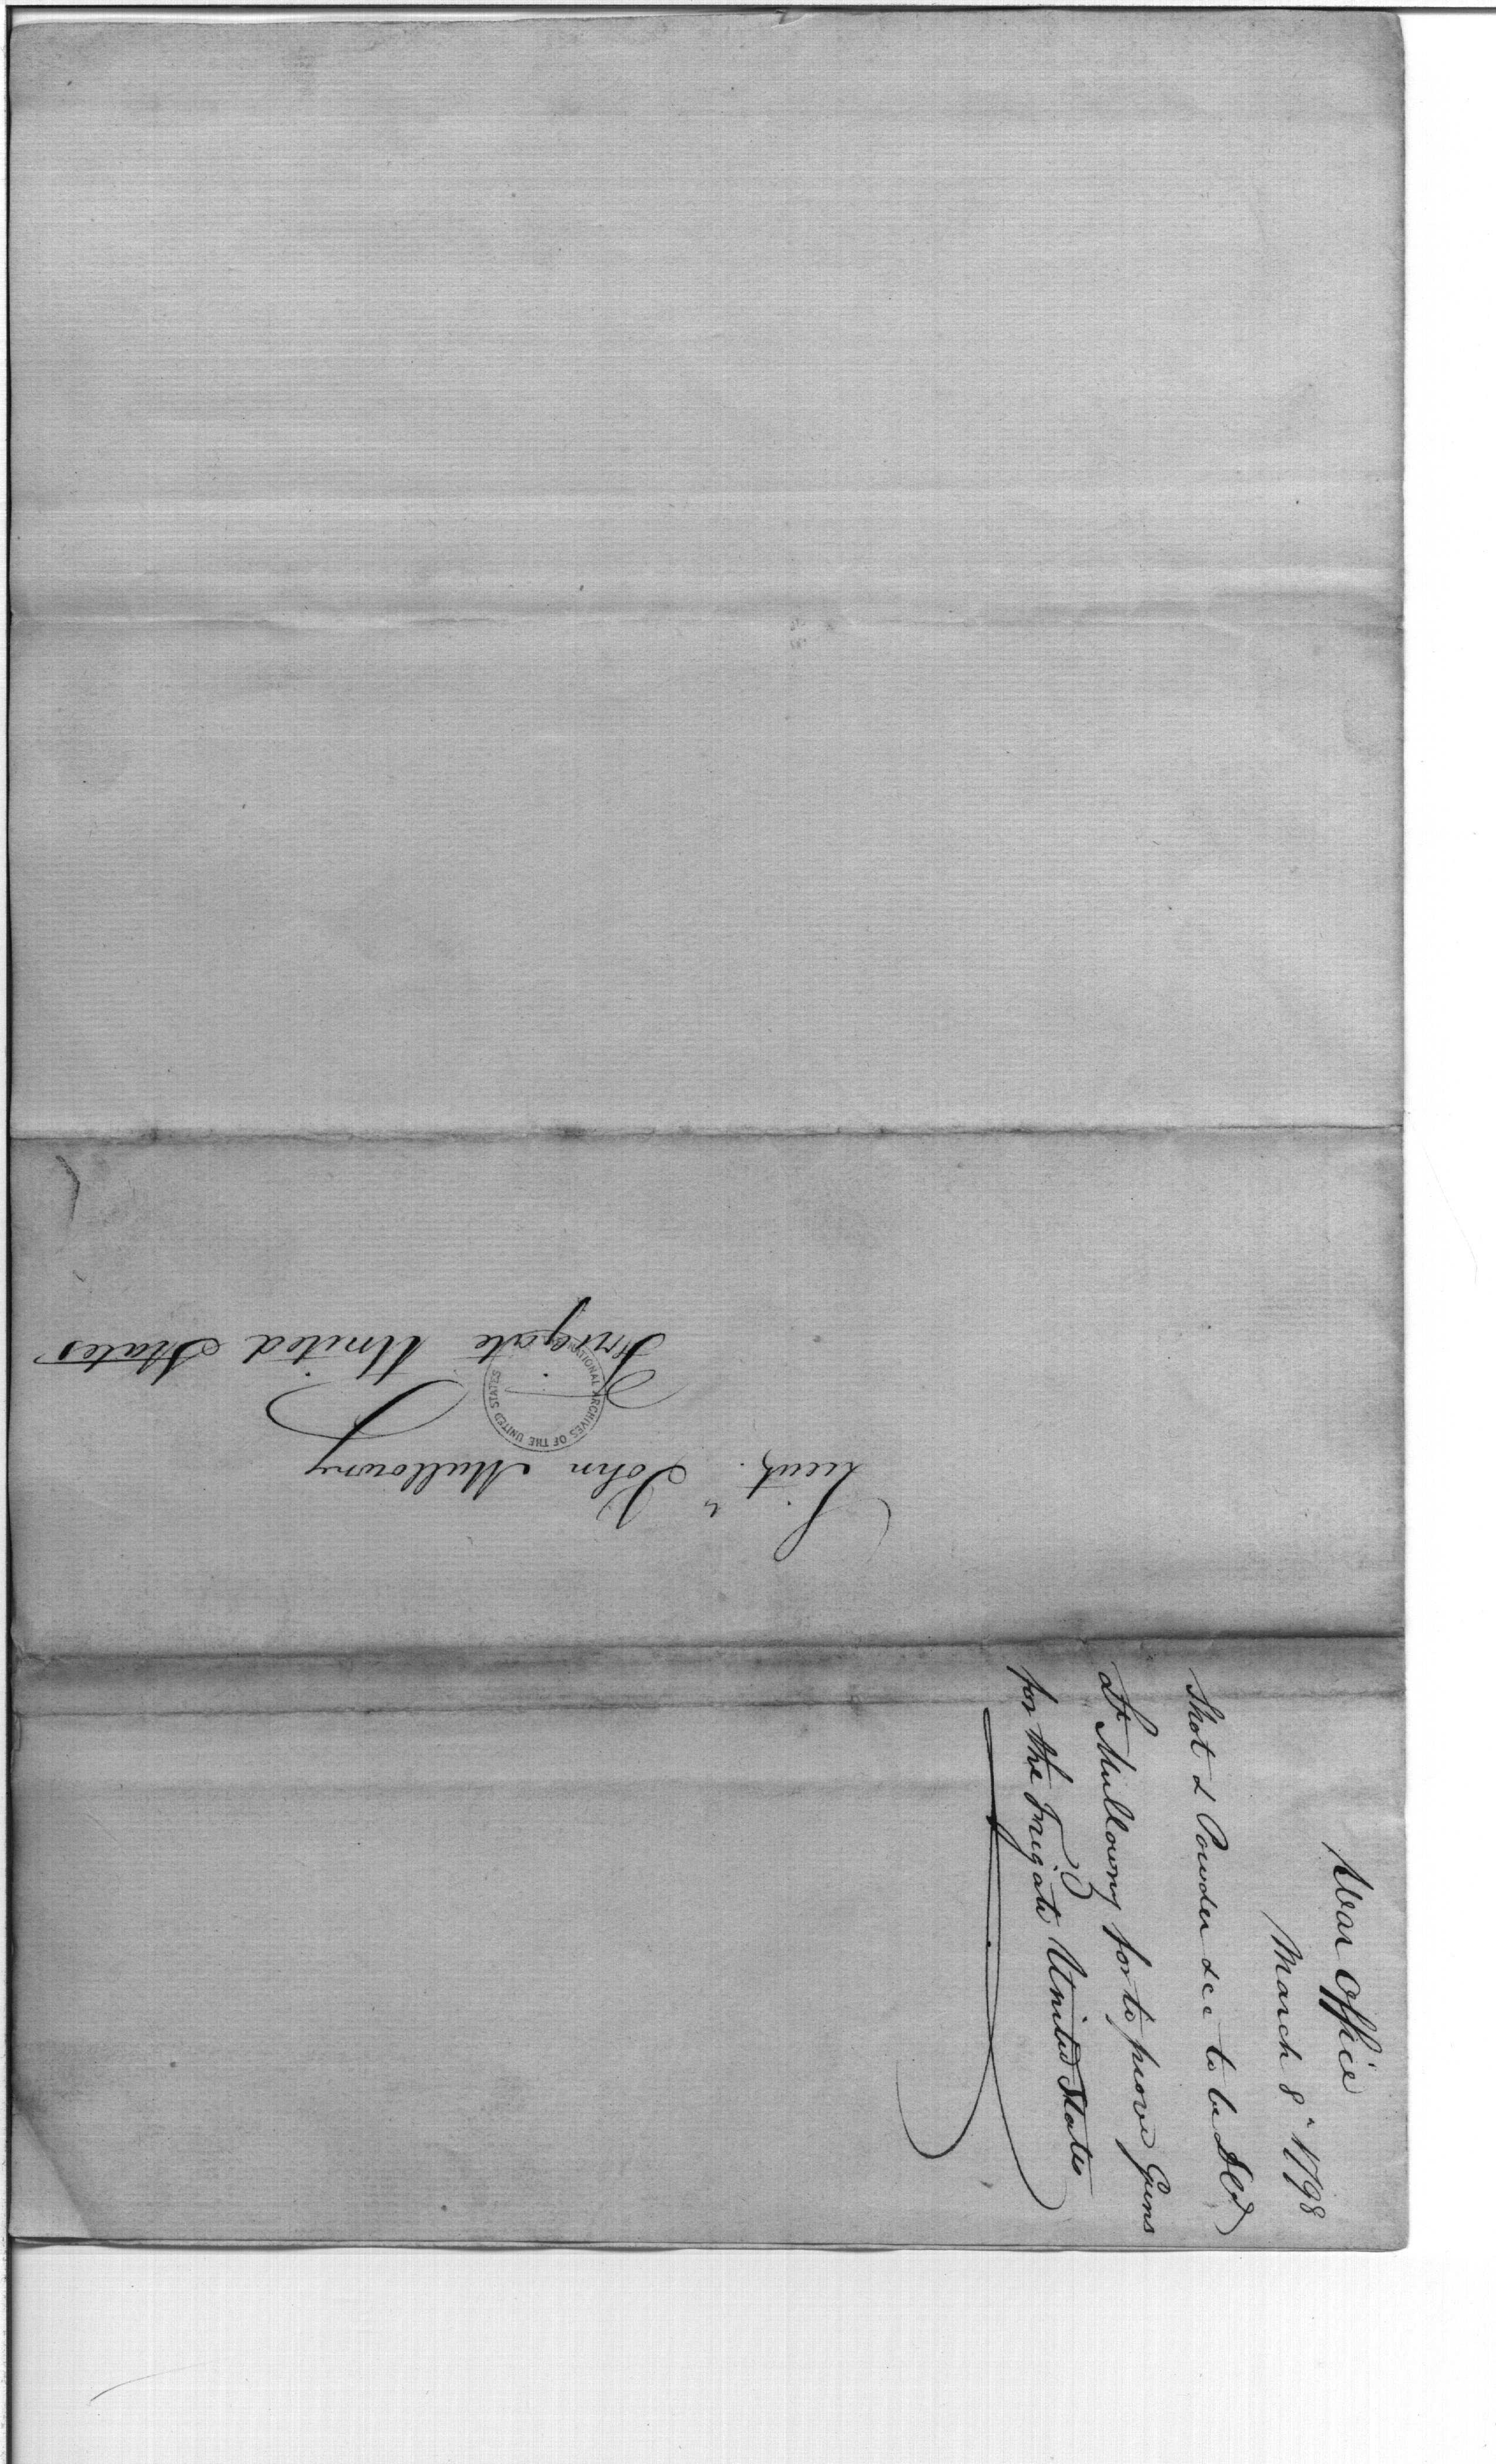 Lieut. John Mullowny
Frigate United States
NATIONAL ARCHIVES OF THE UNITED STATES
War Office
March 8" 1798
Shot & Powder &cc to be Dld
Lt Mullowny for to prove Guns
for the Frigate United States